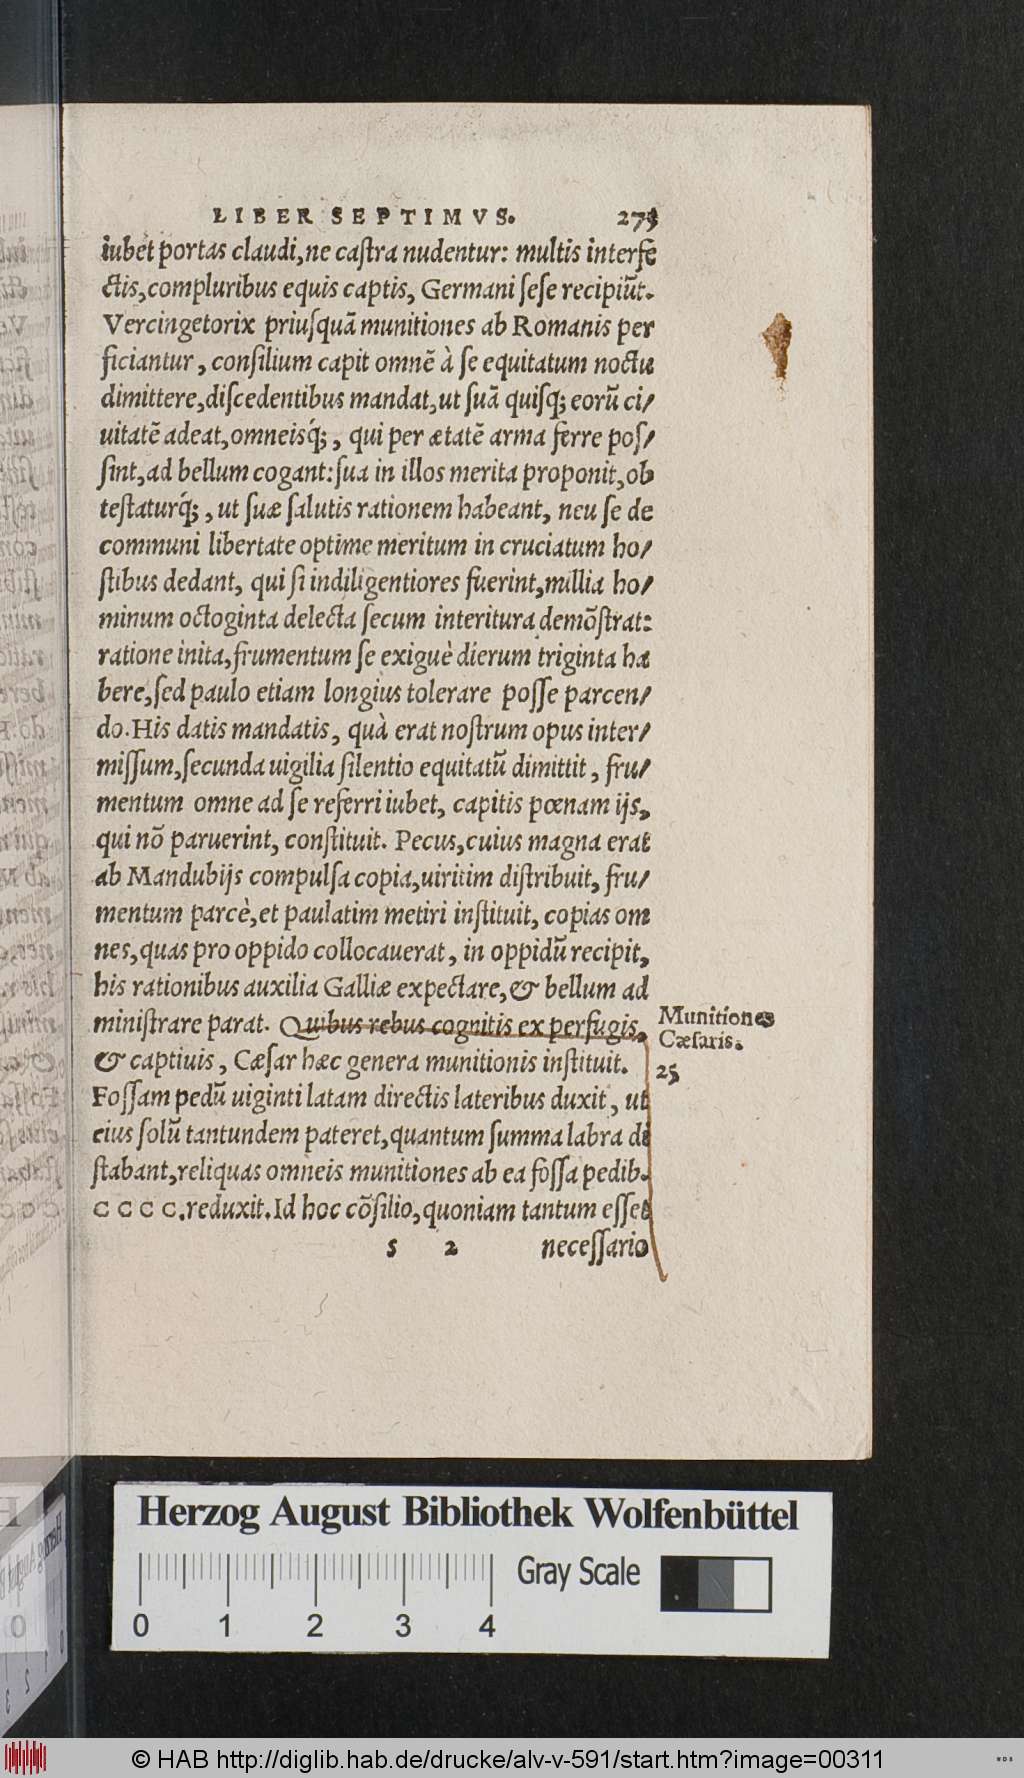 LIBER SEPTIMVS. 275
iubet portas claudi,ne caſtra nudentur: multis interfe
ctis,compluribus equis captis, Germani ſeſe recipiūt.
Vercingetorix priuſquā munitiones ab Romanis per
ficiantur, conſilium capit omnē à ſe equitatum noctu
dimittere,diſcedentibus mandat,ut ſuā quiſq; eorū ci/
uitatē adeat,omneisq́;, qui per ætatē arma ferre poſ/
ſint,ad bellum cogant: ſua in illos merita proponit,ob
teſtaturq́;, ut ſuæ ſalutis rationem habeant, neu ſe de
communi libertate optime meritum in cruciatum ho/
ſtibus dedant, qui ſi indiligentiores fuerint,millia ho/
minum octoginta delecta ſecum interitura demōſtrat:
ratione inita,frumentum ſe exiguè dierum triginta ha
bere,ſed paulo etiam longius tolerare poſſe parcen/
do. His datis mandatis, quà erat noſtrum opus inter/
miſſum,ſecunda uigilia ſilentio equitatū dimittit, fru/
mentum omne ad ſe referri iubet, capitis pœnam ijs,
qui nō paruerint, conſtituit. Pecus,cuius magna erat
ab Mandubijs compulſa copia,uiritim diſtribuit, fru/
mentum parcè,et paulatim metiri inſtituit, copias om
nes,quas pro oppido collocauerat, in oppidū recipit,
his rationibus auxilia Galliæ expectare,& bellum ad
miniſtrare parat. Quibus rebus cognitis ex perfugis,
& captiuis, Cæſar hæc genera munitionis inſtituit.
Foſſam pedū uiginti latam directis lateribus duxit, ut
eius ſolū tantundem pateret,quantum ſumma labra di
ſtabant,reliquas omneis munitiones ab ea foſſa pedib.
CCCC.reduxit. Id hoc cōſilio,quoniam tantum eſſet
s 2 neceſſario
Munitiones
Cæſaris.
25
Herzog August Bibliothek Wolfenbüttel
Gray Scale
0 1 2 3 4
© HAB http://diglib.hab.de/drucke/alv-v-591/start.htm?image=00311